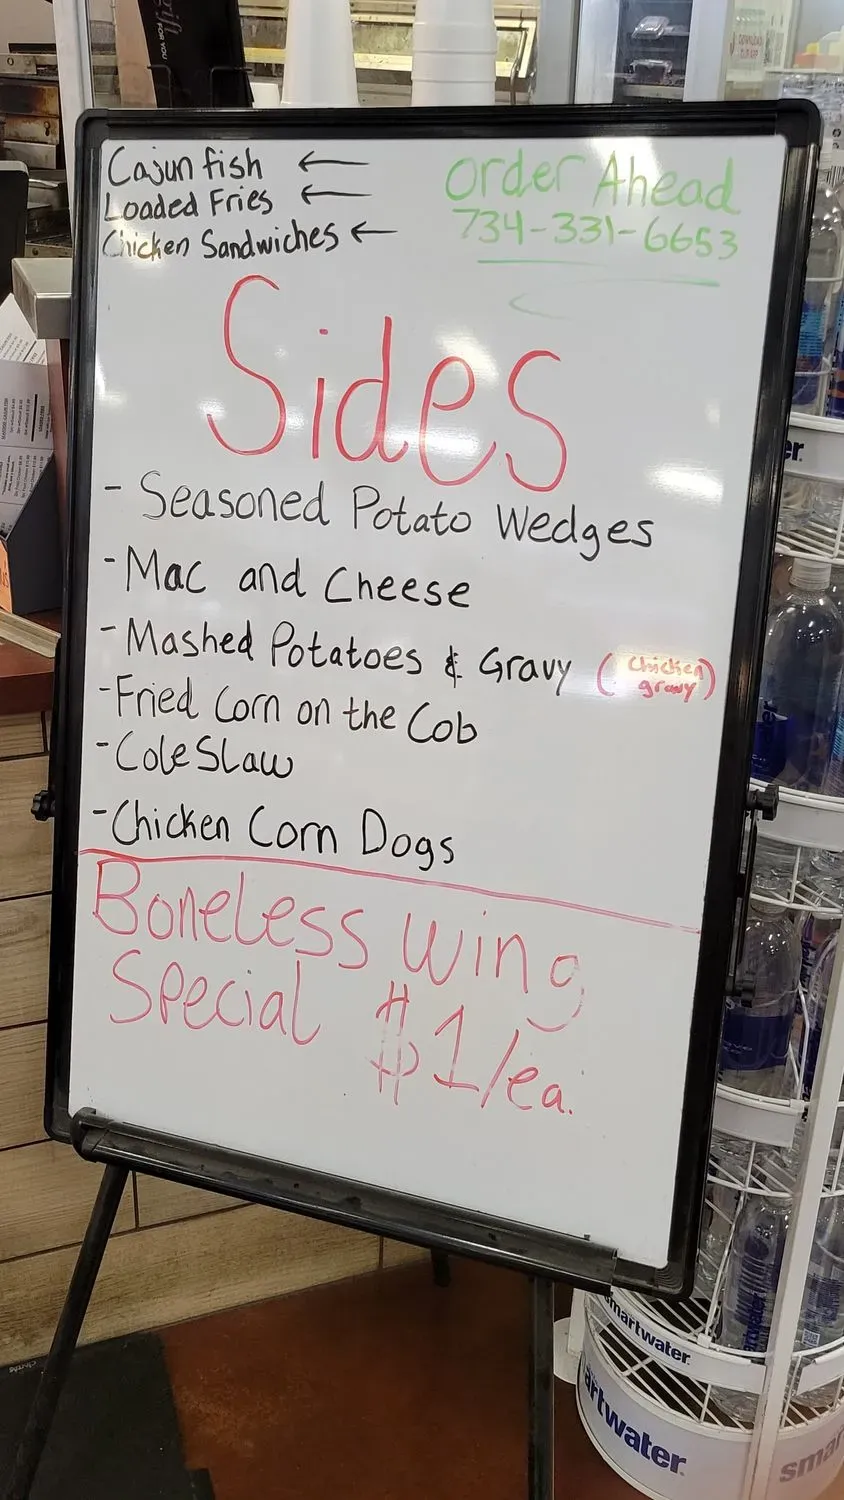 Cajun fish ←
Loaded Fries ←
Chicken Sandwiches ←
Order Ahead
734-331-6653
Sides
- Seasoned Potato Wedges
- Mac and Cheese
- Mashed Potatoes & Gravy (Chicken gravy)
- Fried Corn on the Cob
- Cole Slaw
- Chicken Corn Dogs
Boneless Wing
Special $1/ea.
FOR YOU
er.
smartwater
rtwater.
smar